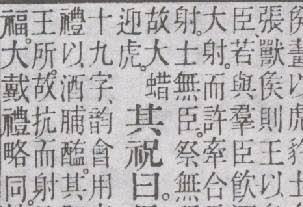 侯畫以虎豹士
張獸侯則王以
臣若與羣臣飲
大射而許牽合
射士無臣祭無
故大蜡
迎虎。
其祝曰。
十九字韵會用
禮以酒脯醢其
王所故抗而射
福大戴禮略同